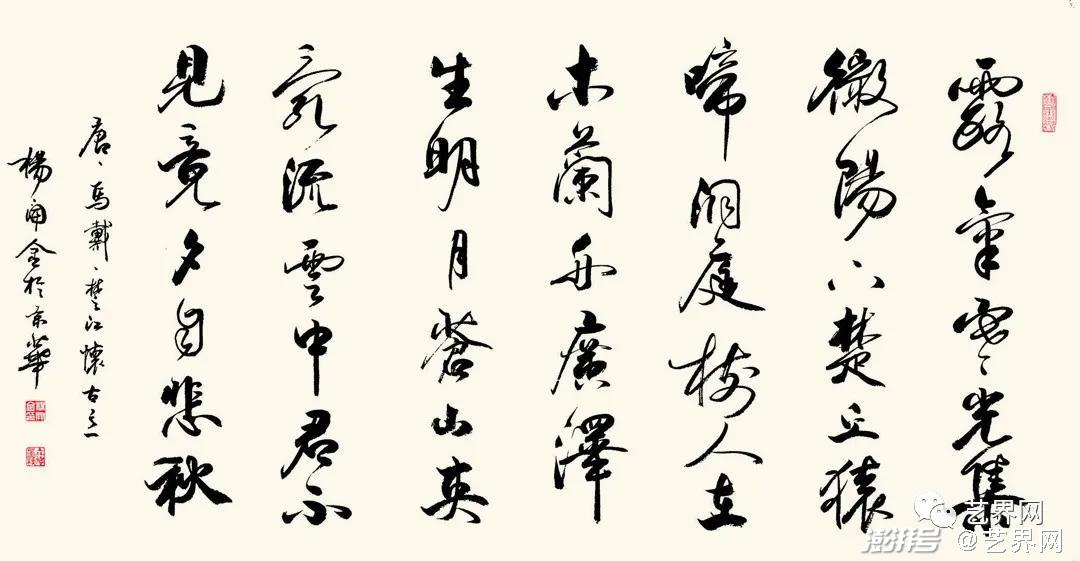 露氣寒光集
微陽下楚丘猿
啼洞庭樹人在
木蘭舟廣澤
生明月蒼山夾
亂流雲中君不
見竟夕自悲秋
唐、馬戴、楚江懷古之一
楊金於京華
艺界网
澎湃号 @艺界网